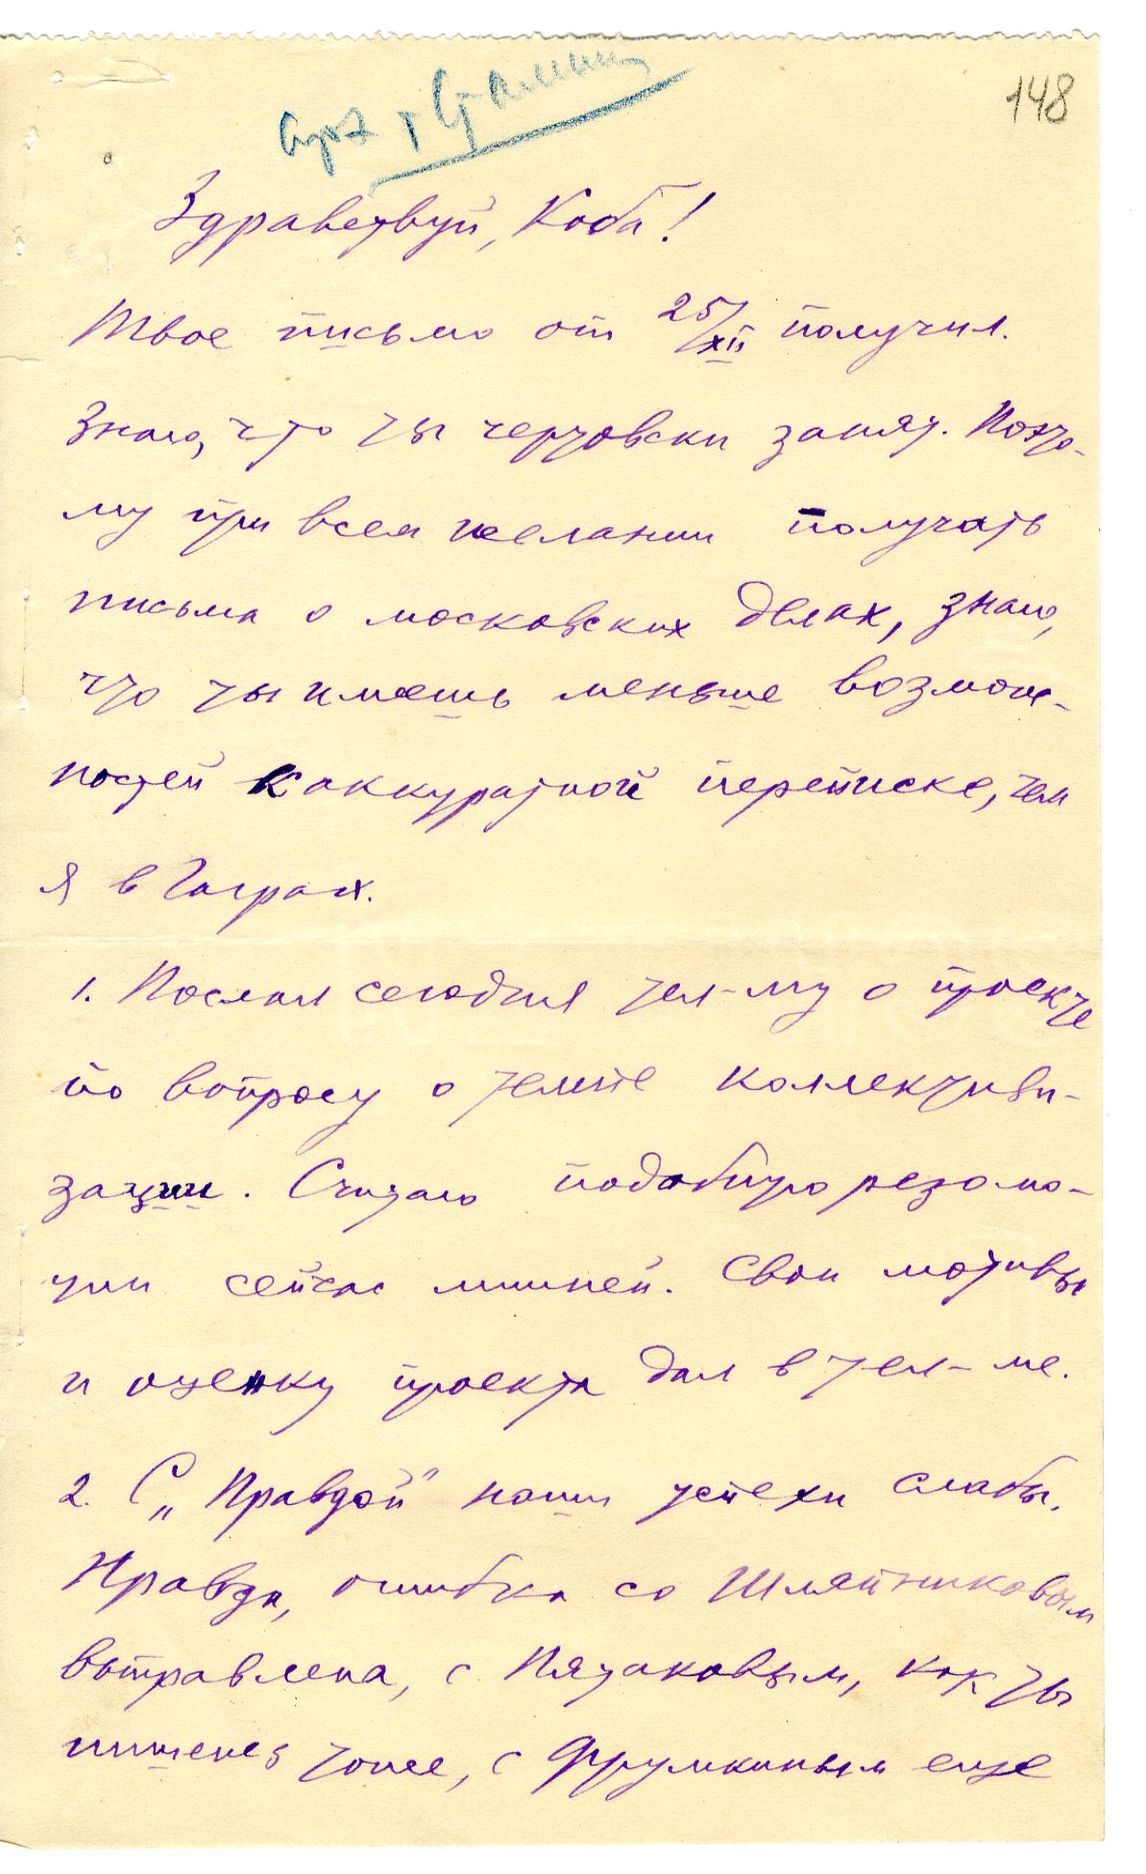 148
Арх. т. Сталина
Здравствуй, Коба!
Твое письмо от 25/XII получил.
Знаю, что ты чертовски занят. Поэто-
му при всем желании получать
письма о московских делах, знаю,
что ты имеешь меньше возмож-
ностей к аккуратной переписке, чем
я в Гаграх.
1. Послал сегодня тел-му о проекте
по вопросу о темпе коллективи-
зации. Считаю подобную резолю-
цию сейчас лишней. Свои мотивы
и оценку проекта дал в тел-ме.
2. С „Правдой" наши успехи слабы.
Правда, ошибка со Шляпниковым
выправлена, с Пятаковым, как ты
пишешь тоже, с Фрумкиным еще